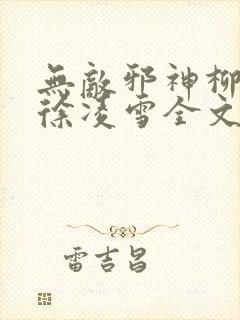 無敵邪神柳
徐凌雪全文
雷吉昌